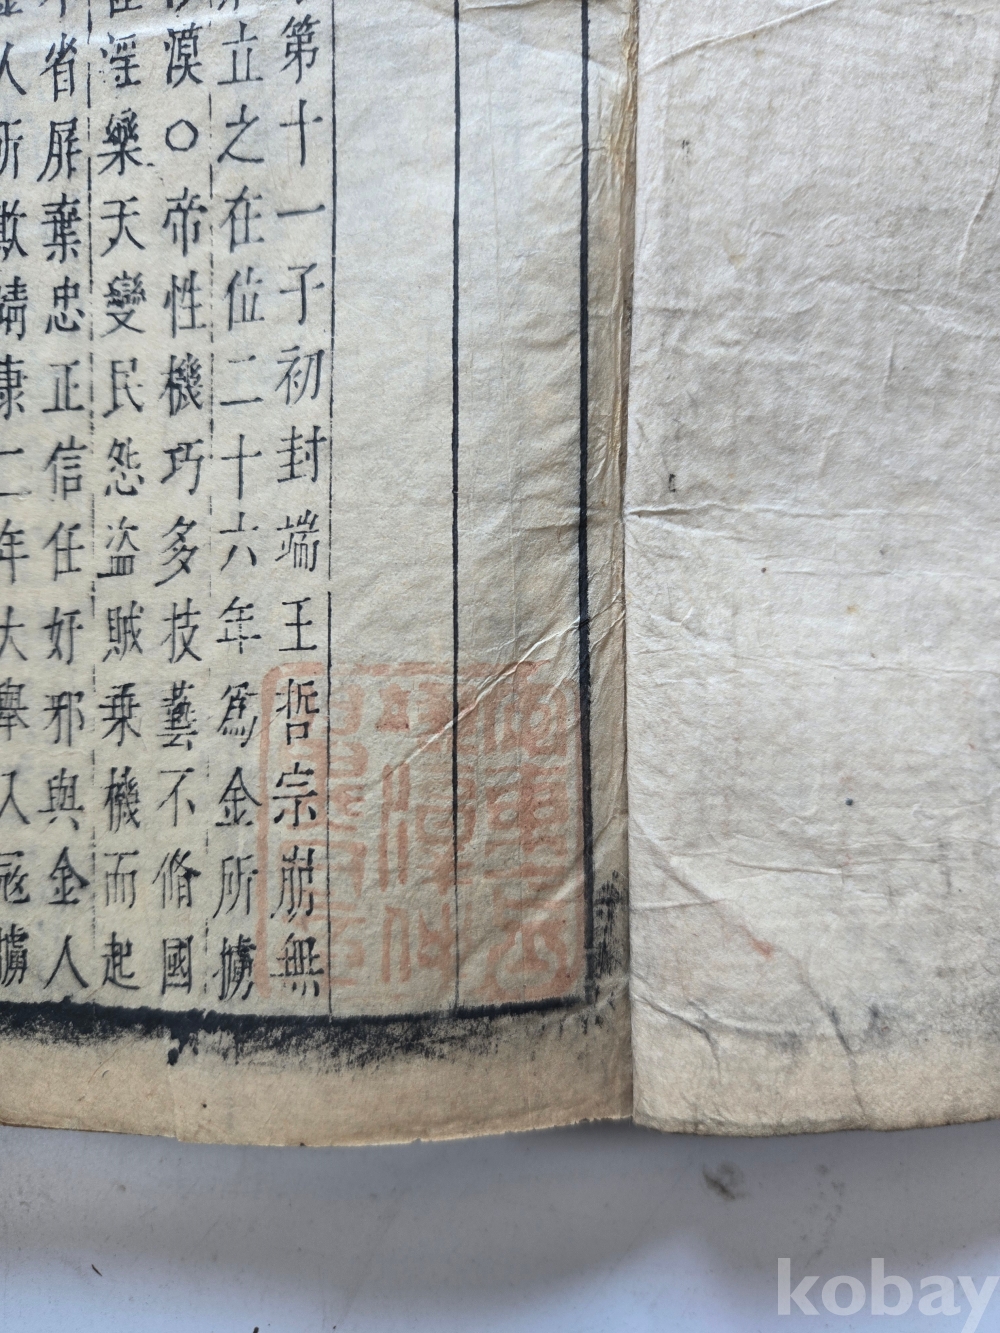 第十一子初封端王哲宗崩無
立之在位二十六年為金所擄
漠○帝性機巧多技藝不脩國
淫樂天變民怨盜賊乗機而起
省屏棄忠正信任好邪與金人
人所欺靖康二年大舉入寇擄
kobay